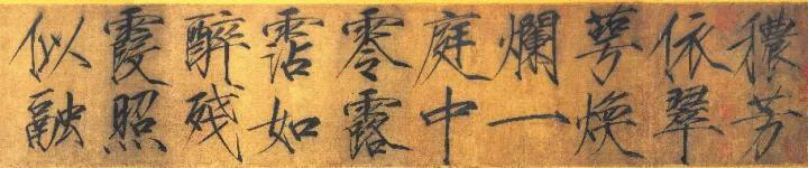 穠芳
依翠
萼煥
爛一
庭中
零露
霑如
醉残
霞照
似融